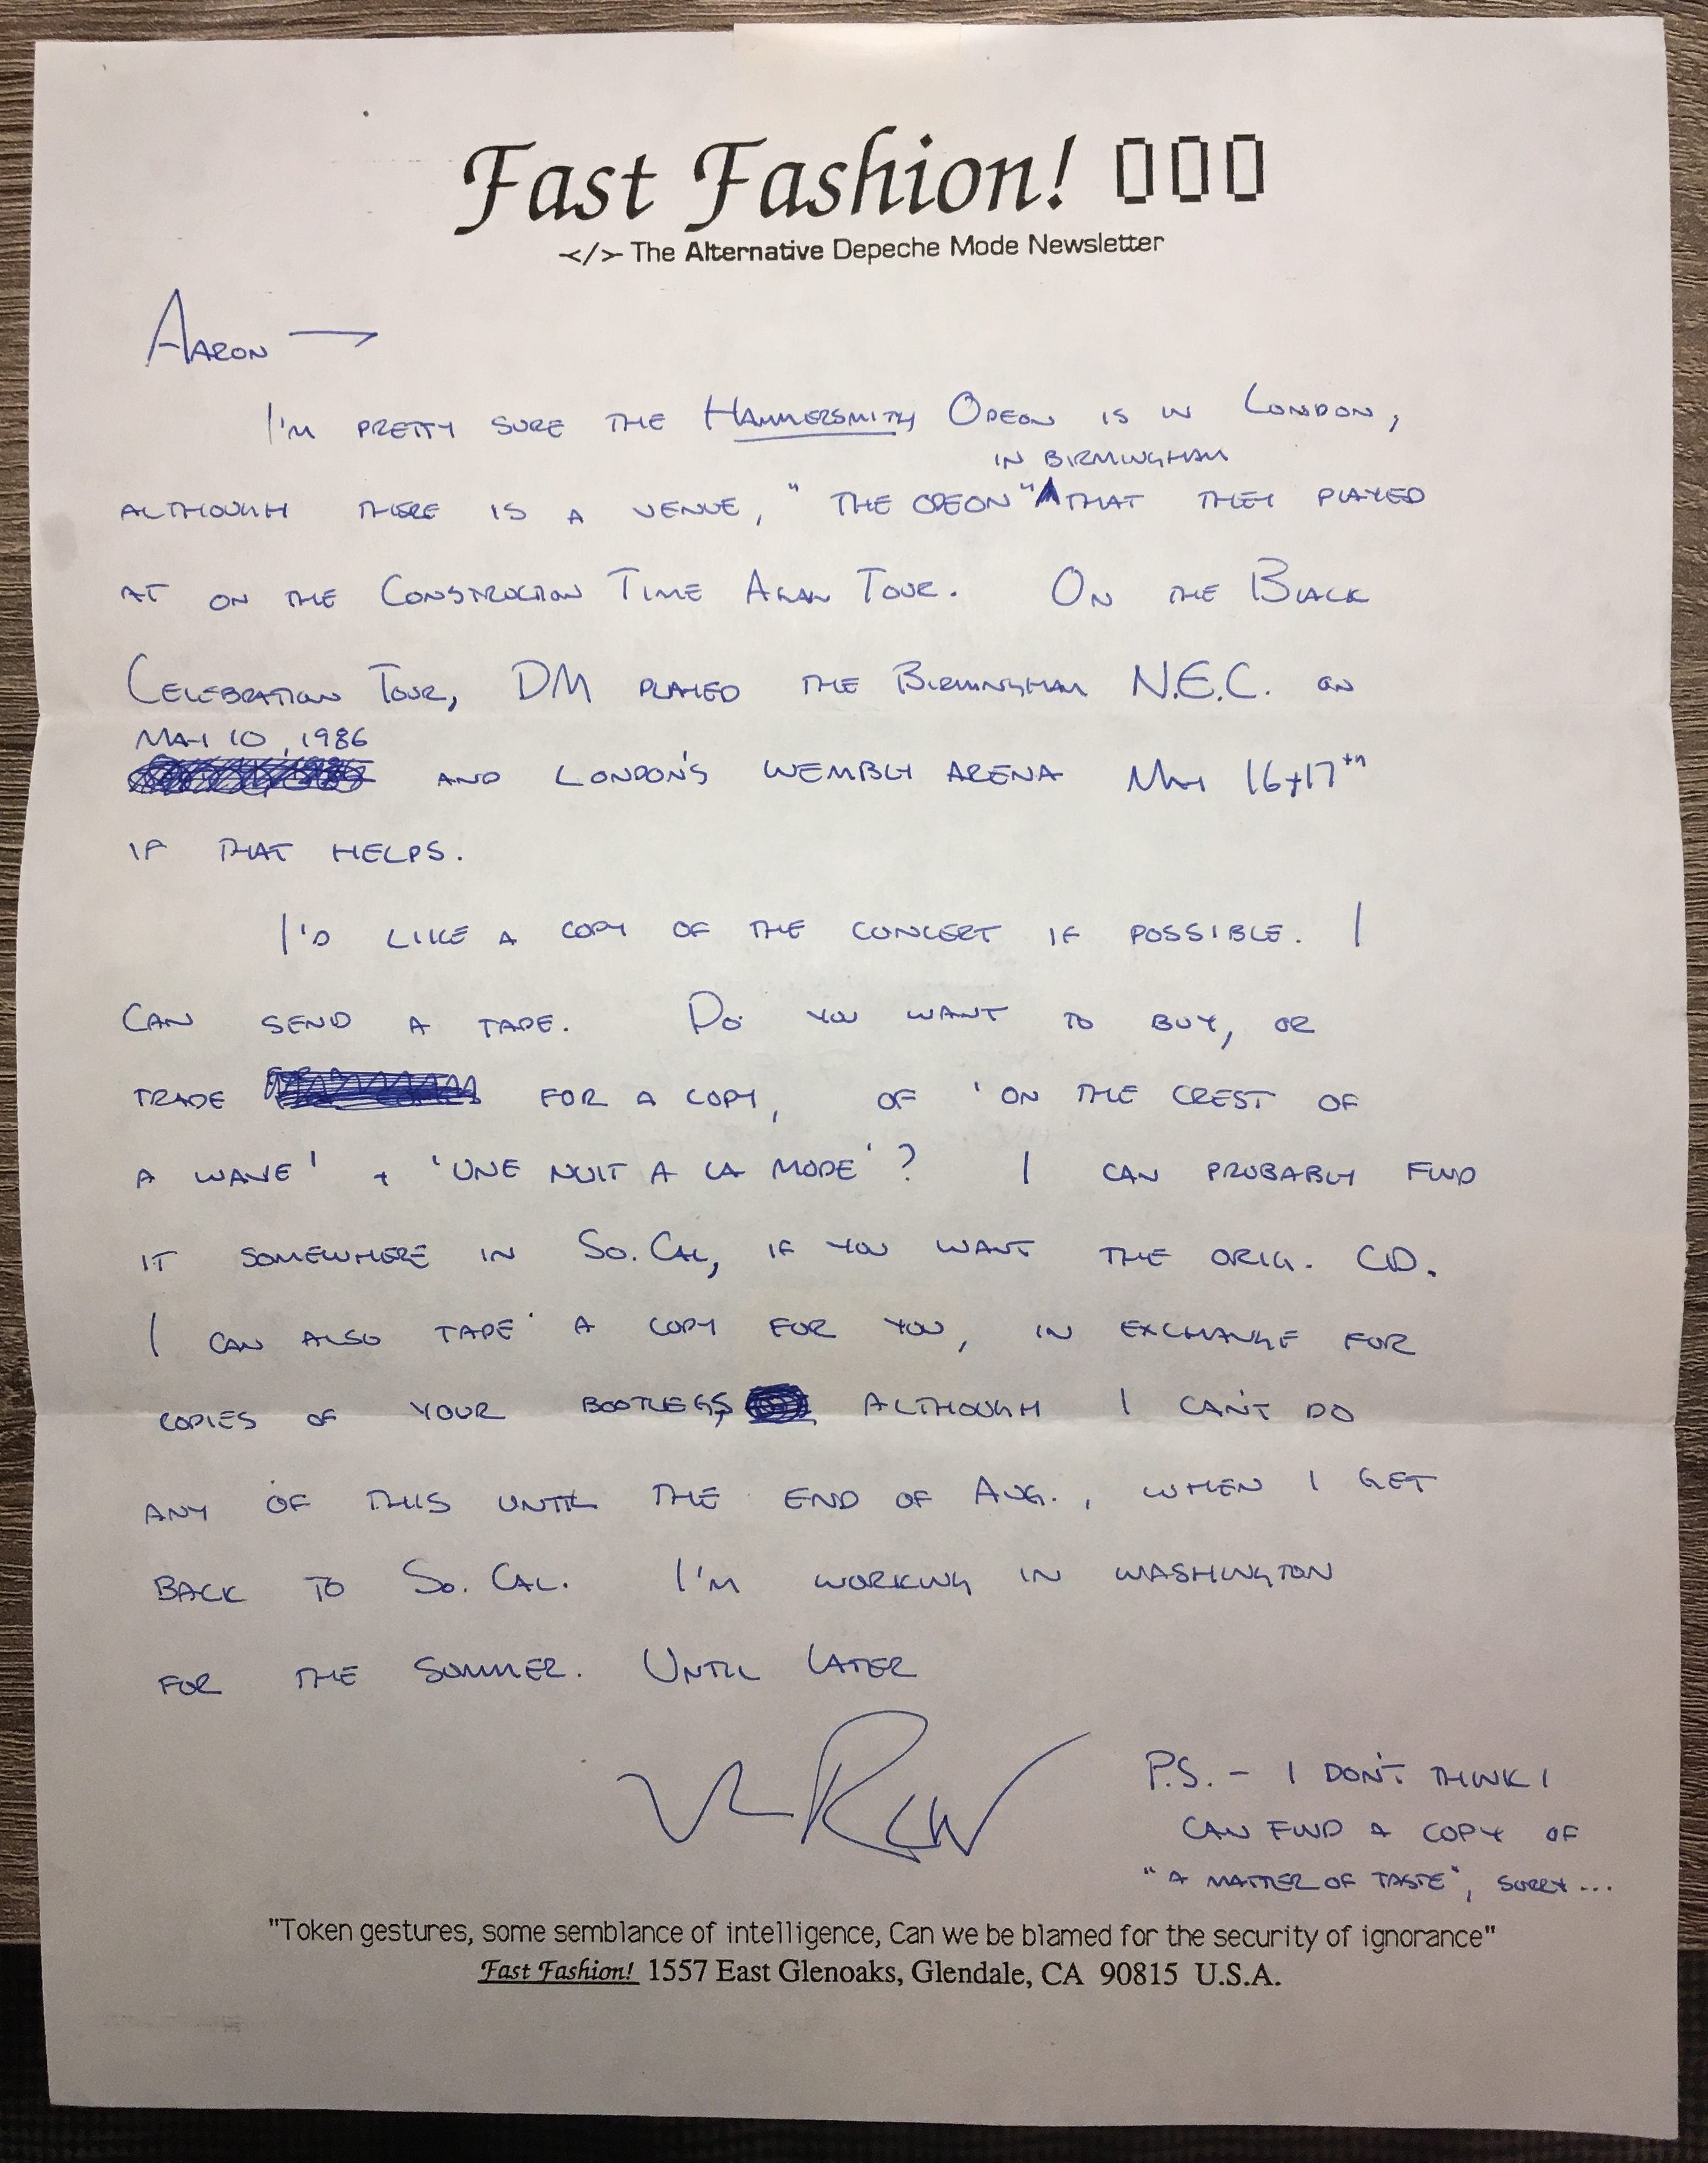 Fast Fashion! 
</> The Alternative Depeche Mode Newsletter
AARON
I'M PRETTY SURE THE HAMMERSMITH ODEON IS IN LONDON,
IN BIRMINGHAM
ALTHOUGH THERE IS A VENUE, "THE ODEON" THAT THEY PLAYED
AT ON THE CONSTRUCTION TIME AGAIN TOUR. ON THE BLACK
CELEBRATION TOUR, DM PLAYED THE BIRMINGHAM N.E.C. ON
MAY 10, 1986
AND LONDON'S WEMBLY ARENA MAY 16+17TH
IF THAT HELPS.
I'D LIKE A COPY OF THE CONCERT IF POSSIBLE. I
CAN SEND A TAPE. DO YOU WANT TO BUY, OR
TRADE FOR A COPY, OF 'ON THE CREST OF
A WAVE' + 'UNE NUIT A LA MODE'? I CAN PROBABLY FIND
IT SOMEWHERE IN SO. CAL, IF YOU WANT THE ORIG. CD.
I CAN ALSO TAPE A COPY FOR YOU, IN EXCHANGE FOR
COPIES OF YOUR BOOTLEGS, ALTHOUGH I CAN'T DO
ANY OF THIS UNTIL THE END OF AUG., WHEN I GET
BACK TO SO. CAL. I'M WORKING IN WASHINGTON
FOR THE SUMMER. UNTIL LATER
P.S. - I DON'T THINK I
CAN FIND A COPY OF
"A MATTER OF TASTE", SORRY...
"Token gestures, some semblance of intelligence, Can we be blamed for the security of ignorance"
Fast Fashion! 1557 East Glenoaks, Glendale, CA 90815 U.S.A.